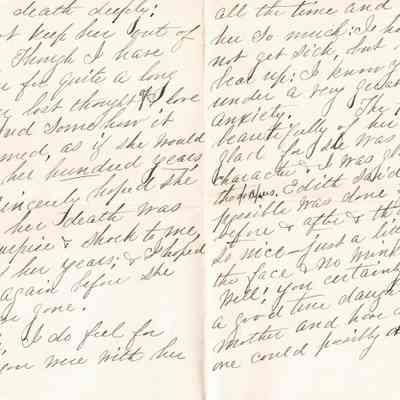 death deeply;
not keep her out of
Though I have
for quite a long
lost thought of I love
and Somehow it
seemed, as if she would
her hundred years,
Sincerely hoped she
her death was
surprise & shock to me,
her years; & I hoped
again before she
gone.
I do feel for
you were with her
all the time and
her So much: I ho
not get sick, but
bear up: I know y
under a very great
anxiety. The
beautifully of her
glad for she was
character: I was gl
Edith said
possible was done
before & after & th
So nice—just a litt
the face & no wrink
Well; you certainly
a good true daugh
mother and how
one could possibly